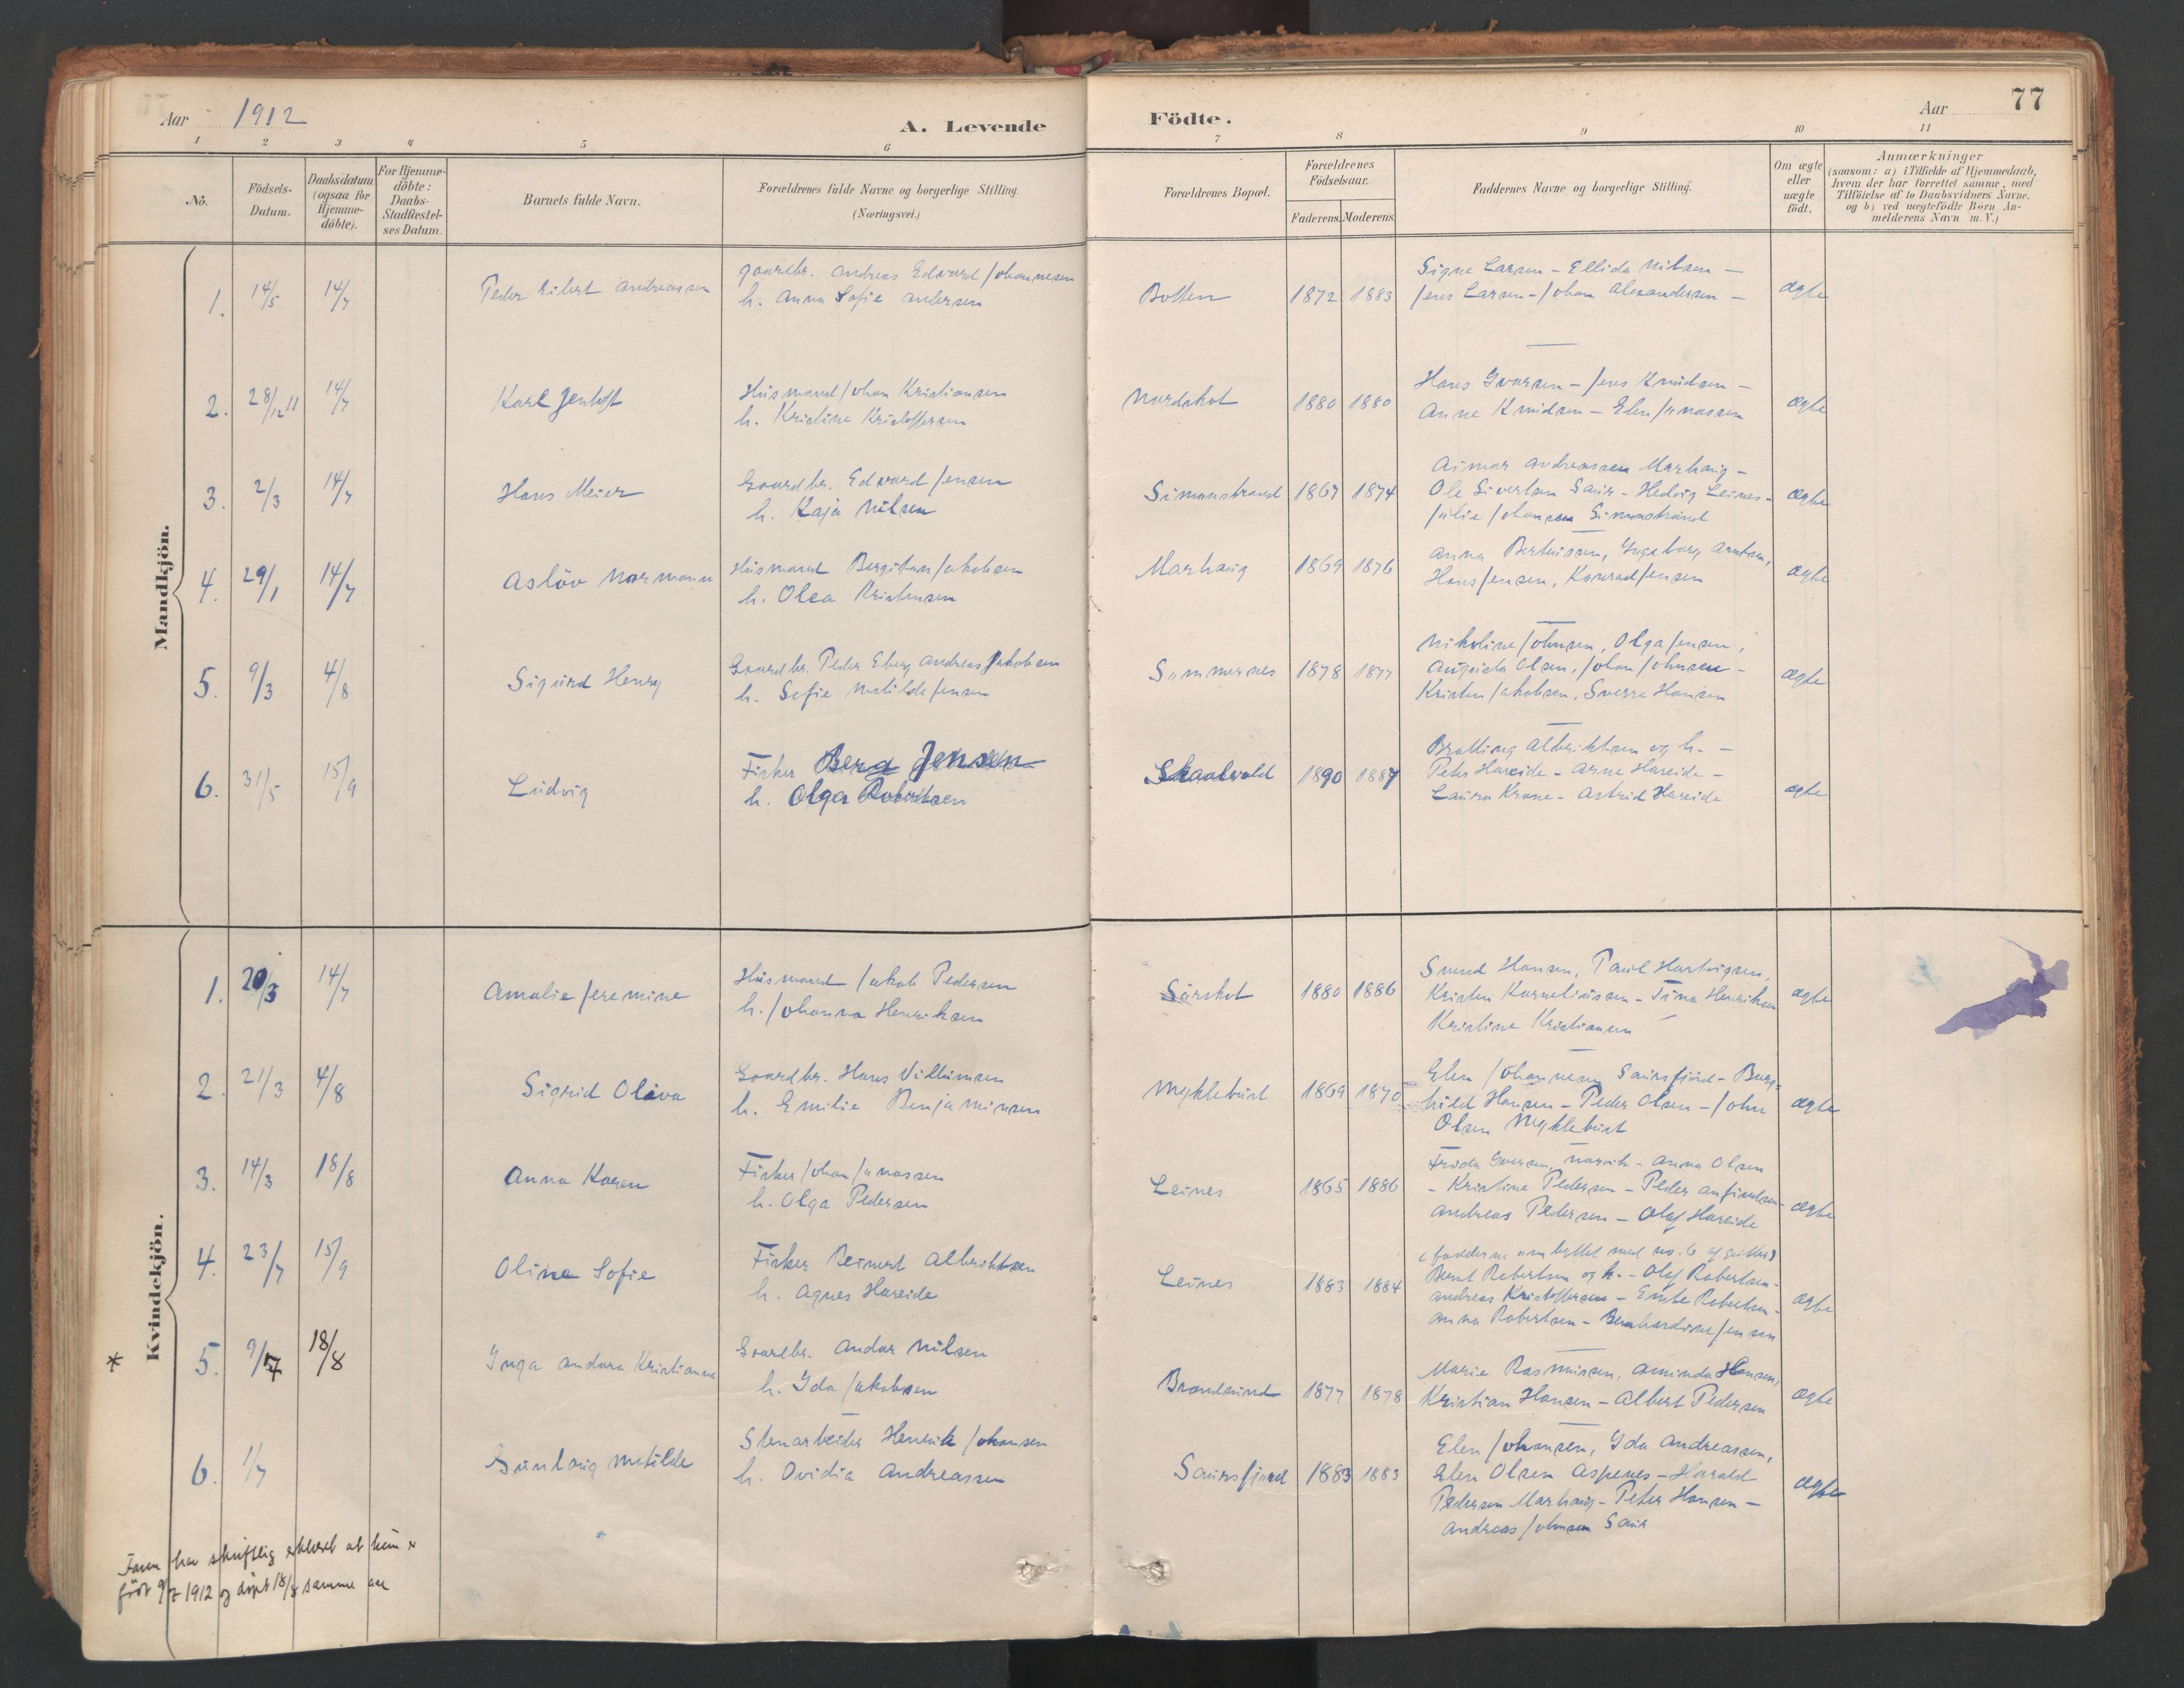 Aar 1912
A. Levende Födte.
Aar 77
1 2 3 4 5 6 7 8 9 10 11
No.
Födsels-Datum.
Daabsdatum (ogsaa for Hjemme-döbte).
For Hjemme-döbte: Daabs-Stadfæstel-ses Datum.
Barnets fulde Navn.
Forældrenes fulde Navne og borgerlige Stilling. (Næringsvei.)
Forældrenes Bopæl.
Forældrenes Födselsaar.
Faderens. Moderens.
Faddernes Navne og borgerlige Stilling.
Om ægte eller uægte födt.
Anmærkninger
(saasom: a) i Tilfælde af Hjemmedaab,
hvem der har forrettet samme, med
Tilföielse af to Daabsvidners Navne.
og b) ved uægtefödte Börn An-
melderens Navn m. V.)
Mandkjön.
1. 14/5 14/7 Peder Eilert Andreassen
Gaardbr. Andreas Edvard Johannesen
h. Anna Sofie Andersen
Botten 1872 1883
Signe Larsen - Ellida Nilsen -
Jens Larsen - Johan Alexandersen -
ægte
2. 28/12 11 14/7 Karl Jentoft
Husmand Johan Kristiansen
h. Kristine Kristoffersen
Nordskot 1880 1880
Hans Ivarsen - Jens Knudsen -
Anne Knudsen - Elen Jonassen
ægte
3. 2/3 14/7 Hans Meier
Gaardbr. Edvard Jensen
h. Kaja Nilsen
Simonstrand 1867 1874
Aimar Andreassen Marhaug -
Ole Sivertsen Saur - Hedvig Leines -
Julie Johansen Simonstrand
ægte
4. 29/1 14/7 Asløv Normann
Husmand Bergiton Jakobsen
h. Olea Kristensen
Marhaug 1869 1876
Anna Berteussen, Ingeborg Arntsen,
Hans Jensen, Konrad Jensen
ægte
5. 9/3 4/8 Sigurd Henry
Gaardbr. Peder Eberg Andreas Jakobsen
h. Sofie Matilde Jensen
Sommernes 1878 1877
Nikoline Johnsen, Olga Jensen,
Augusta Olsen, Johan Johnsen -
Kristen Jakobsen, Sverre Hansen
ægte
6. 31/5 15/9 Ludvig
Fisker Berg Jensen
h. Olga Robertsen
Skaalvold 1890 1887
Bratting Albriktsen og h. -
Peter Hareide - Arne Hareide -
Laura Krane - Astrid Hareide
ægte
Kvindekjön.
1. 20/3 14/7 Amalie Jeremine
Husmand Jakob Pedersen
h. Johanna Henriksen
Sørskot 1880 1886
Svend Hansen, Paul Hartvigsen,
Kristen Korneliussen - Tina Henriksen
Kristine Kristiansen
ægte
2. 21/3 4/8 Sigrid Oliva
Gaardbr. Hans Villumsen
h. Emilie Benjaminsen
Myklebust 1869 1870
Elen Johannesen Saursfjord - Borg-
hild Hansen - Peder Olsen - John
Olsen Myklebust
ægte
3. 14/3 18/8 Anna Karen
Fisker Johan Jonassen
h. Olga Pedersen
Leines 1865 1886
Frida Iversen, Narvik - Anna Olsen
- Kristine Pedersen - Peder Anfindsen -
Andreas Pedersen - Olaf Hareide
ægte
4. 23/7 15/9 Oline Sofie
Fisker Reinert Albriktsen
h. Agnes Hareide
Leines 1883 1884
(fadderne ombyttet med no. 6 af gutter)
Bernt Robertsen og h. - Olaf Robertsen -
Andreas Kristoffersen - Grete Robertsen -
Anna Robertsen - Bernhardine Jensen
ægte
* 5. 9/7 18/8 Inga Andora Kristianne
Gaardbr. Andor Nilsen
h. Ida Jakobsen
Brandsund 1877 1878
Marie Rasmussen, Aminda Hansen,
Kristian Hansen - Albert Pedersen
ægte
6. 1/7 Gunlaug Matilde
Stenarbeider Henrik Johansen
h. Ovidia Andreassen
Saursfjord 1883 1883
Elen Johansen, Ida Andreassen,
Elen Olsen Aspenes - Harald
Pedersen Marhaug - Peter Hansen -
Andreas Johnsen Saur
ægte
Faren har skriftlig erklæret at hun er
født 9/7 1912 og døpt 18/8 samme aar